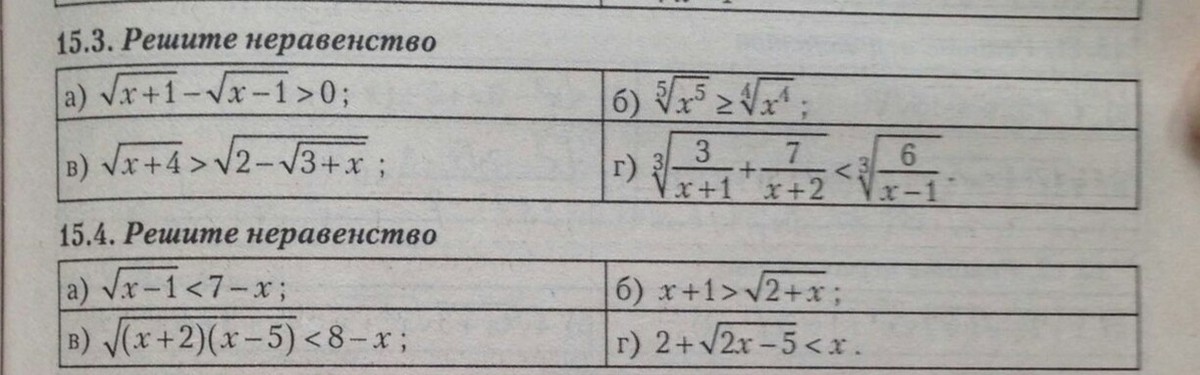 15.3. Решите неравенство
а) √(x+1) − √(x−1) > 0;
б) ⁵√(x⁵) ≥ ⁴√(x⁴);
в) √(x+4) > √(2−√(3+x));
г) ³√(3/(x+1) + 7/(x+2)) < ³√(6/(x−1)).
15.4. Решите неравенство
а) √(x−1) < 7−x;
б) x+1 > √(2+x);
в) √((x+2)(x−5)) < 8−x;
г) 2+√(2x−5) < x.